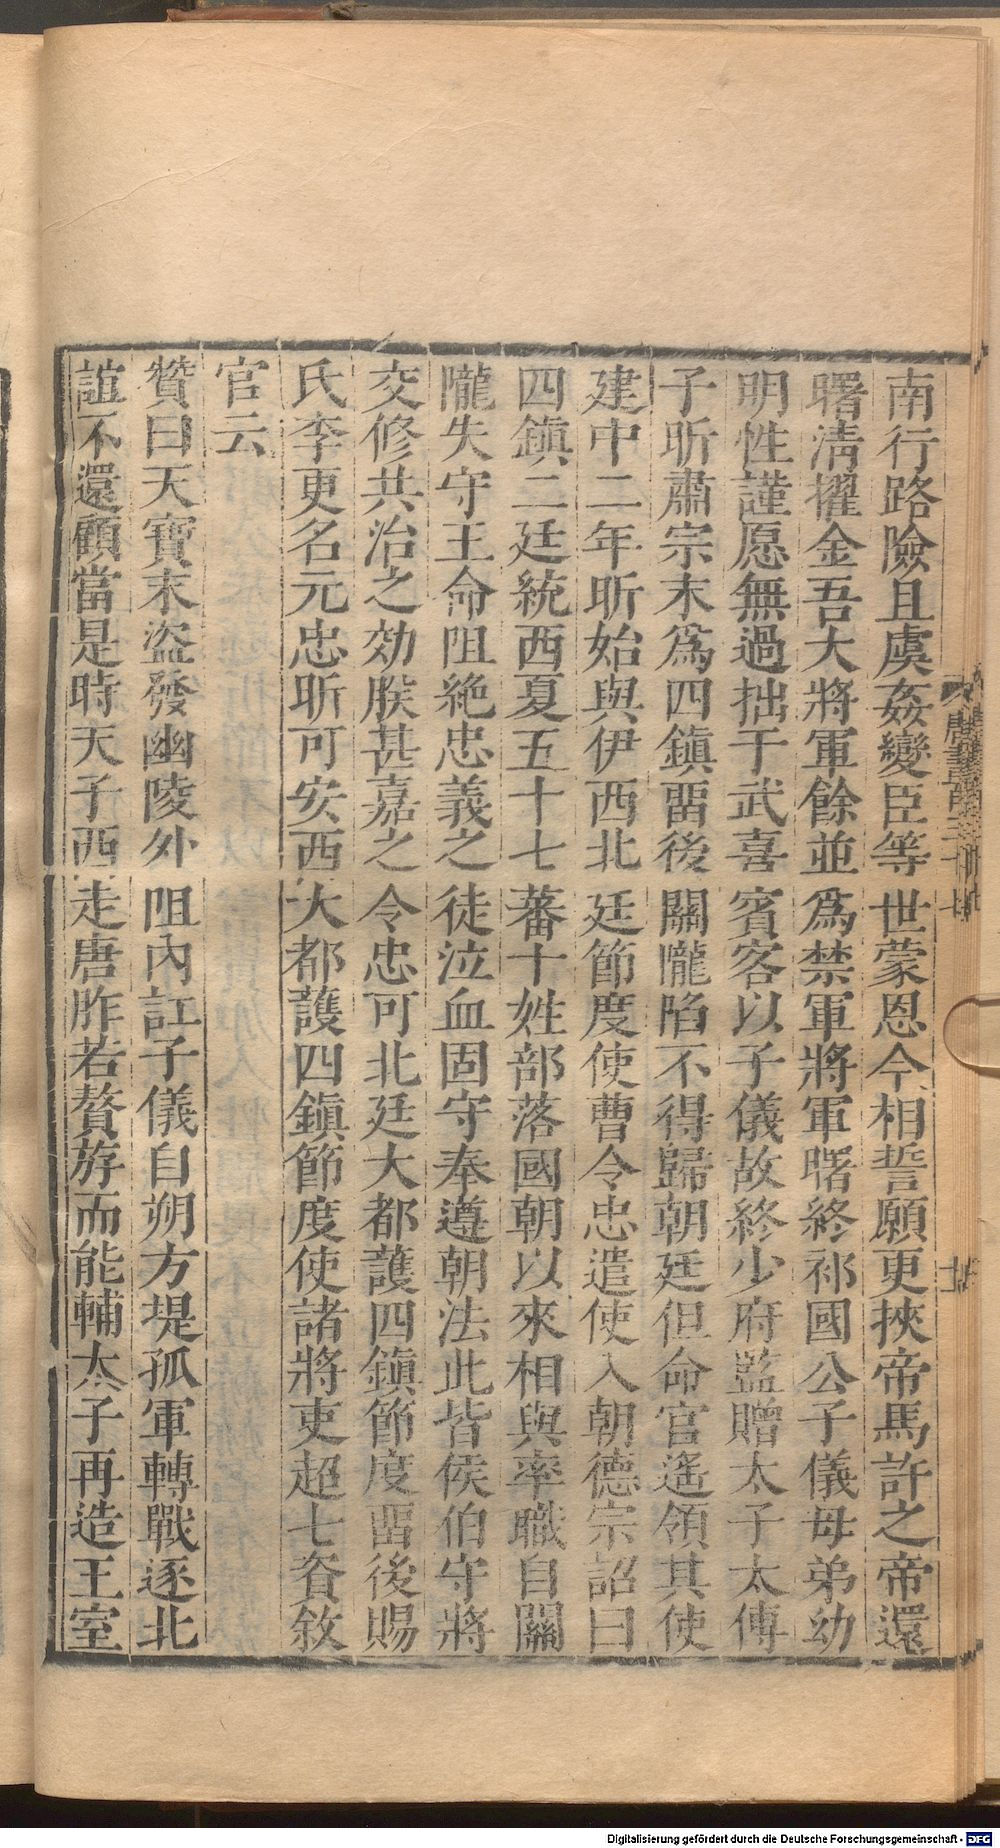 南行路險且虞姦變臣等世蒙恩今相誓願更挾帝馬許之帝還
曙淸擢金吾大將軍餘並爲禁軍將軍曙終祁國公子儀母弟幼
明性謹愿無過拙于武喜賓客以子儀故終少府監贈太子太傅
子昕肅宗末爲四鎭畱後關隴陷不得歸朝廷但命官遙領其使
建中二年昕始與伊西北廷節度使曹令忠遣使入朝德宗詔曰
四鎭二廷統西夏五十七蕃十姓部落國朝以來相與率職自關
隴失守王命阻絶忠義之徒泣血固守奉遵朝法此皆侯伯守將
交修共治之効朕甚嘉之令忠可北廷大都護四鎭節度畱後賜
氏李更名元忠昕可安西大都護四鎭節度使諸將吏超七資敘
官云
贊曰天寶末盜發幽陵外阻內訌子儀自朔方提孤軍轉戰逐北
誼不還顧當是時天子西走唐胙若贅斿而能輔太子再造王室
Digitalisierung gefördert durch die Deutsche Forschungsgemeinschaft - DFG